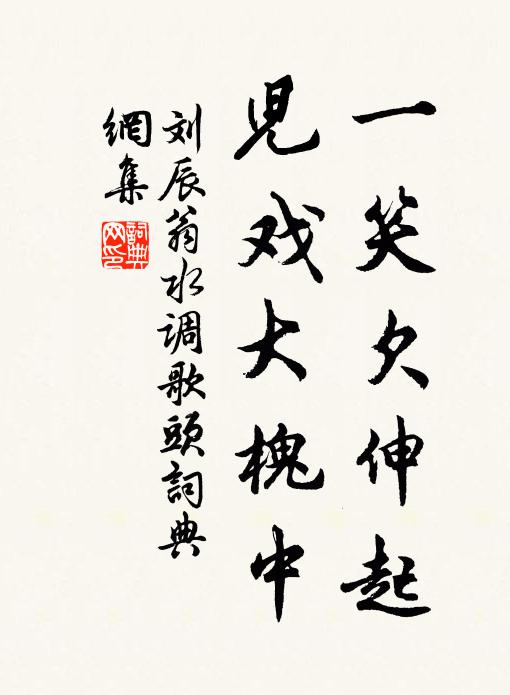 一笑欠伸起
児戏大槐中
刘辰翁水调歌頭詞典
網集
詞典网印